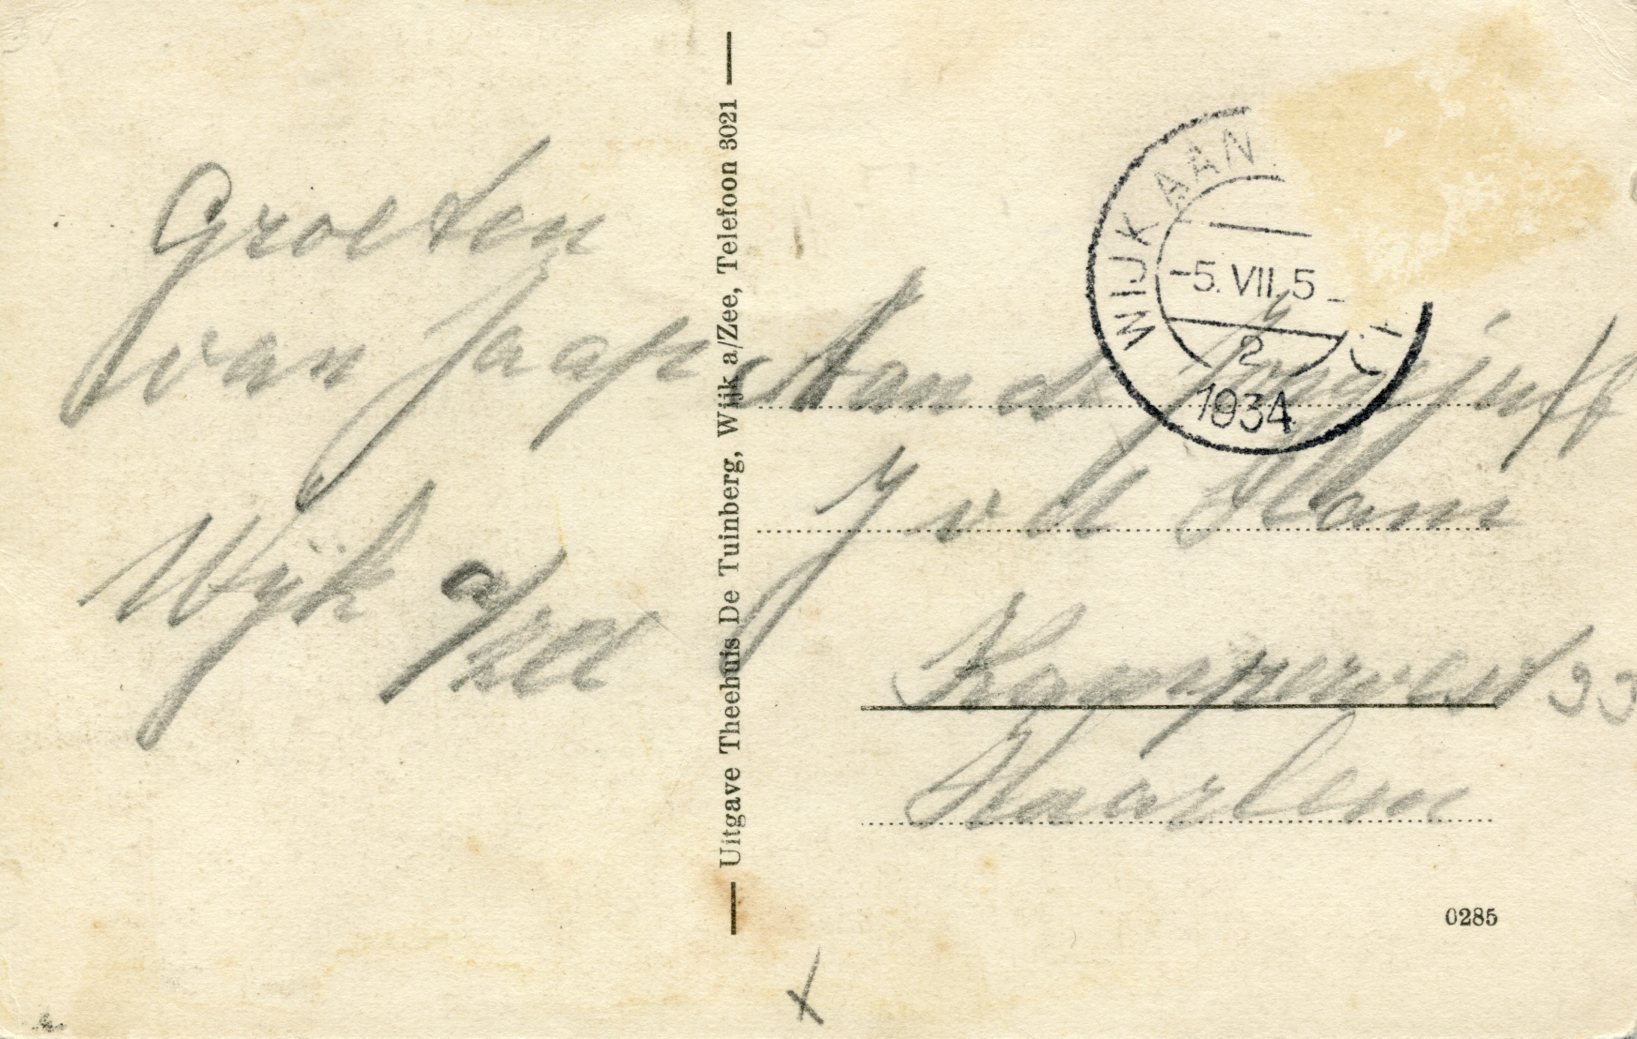 Groeten
van Jaap
Wijk a/zee
Uitgave Theehuis De Tuinberg, Wijk a/Zee, Telefoon 3021
WIJK AAN
-5.VII.5-
2
1934
Aan de Jongejuff
J v d Ham
Kampervest 33
Haarlem
0285